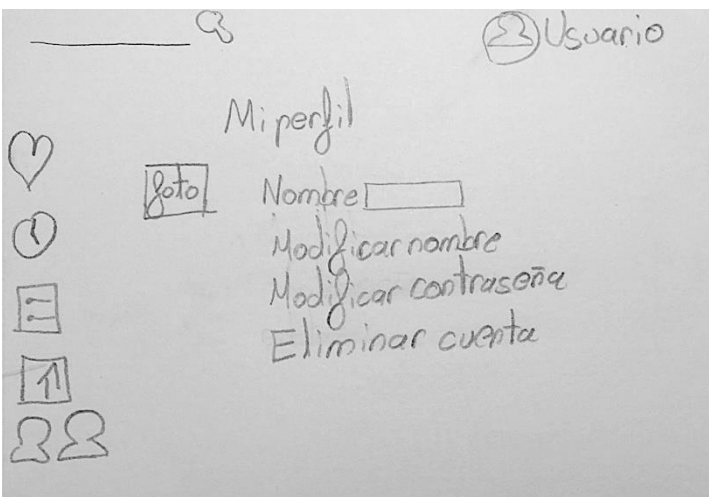 Usuario
Mi perfil
foto
Nombre
Modificar nombre
Modificar contraseña
Eliminar cuenta